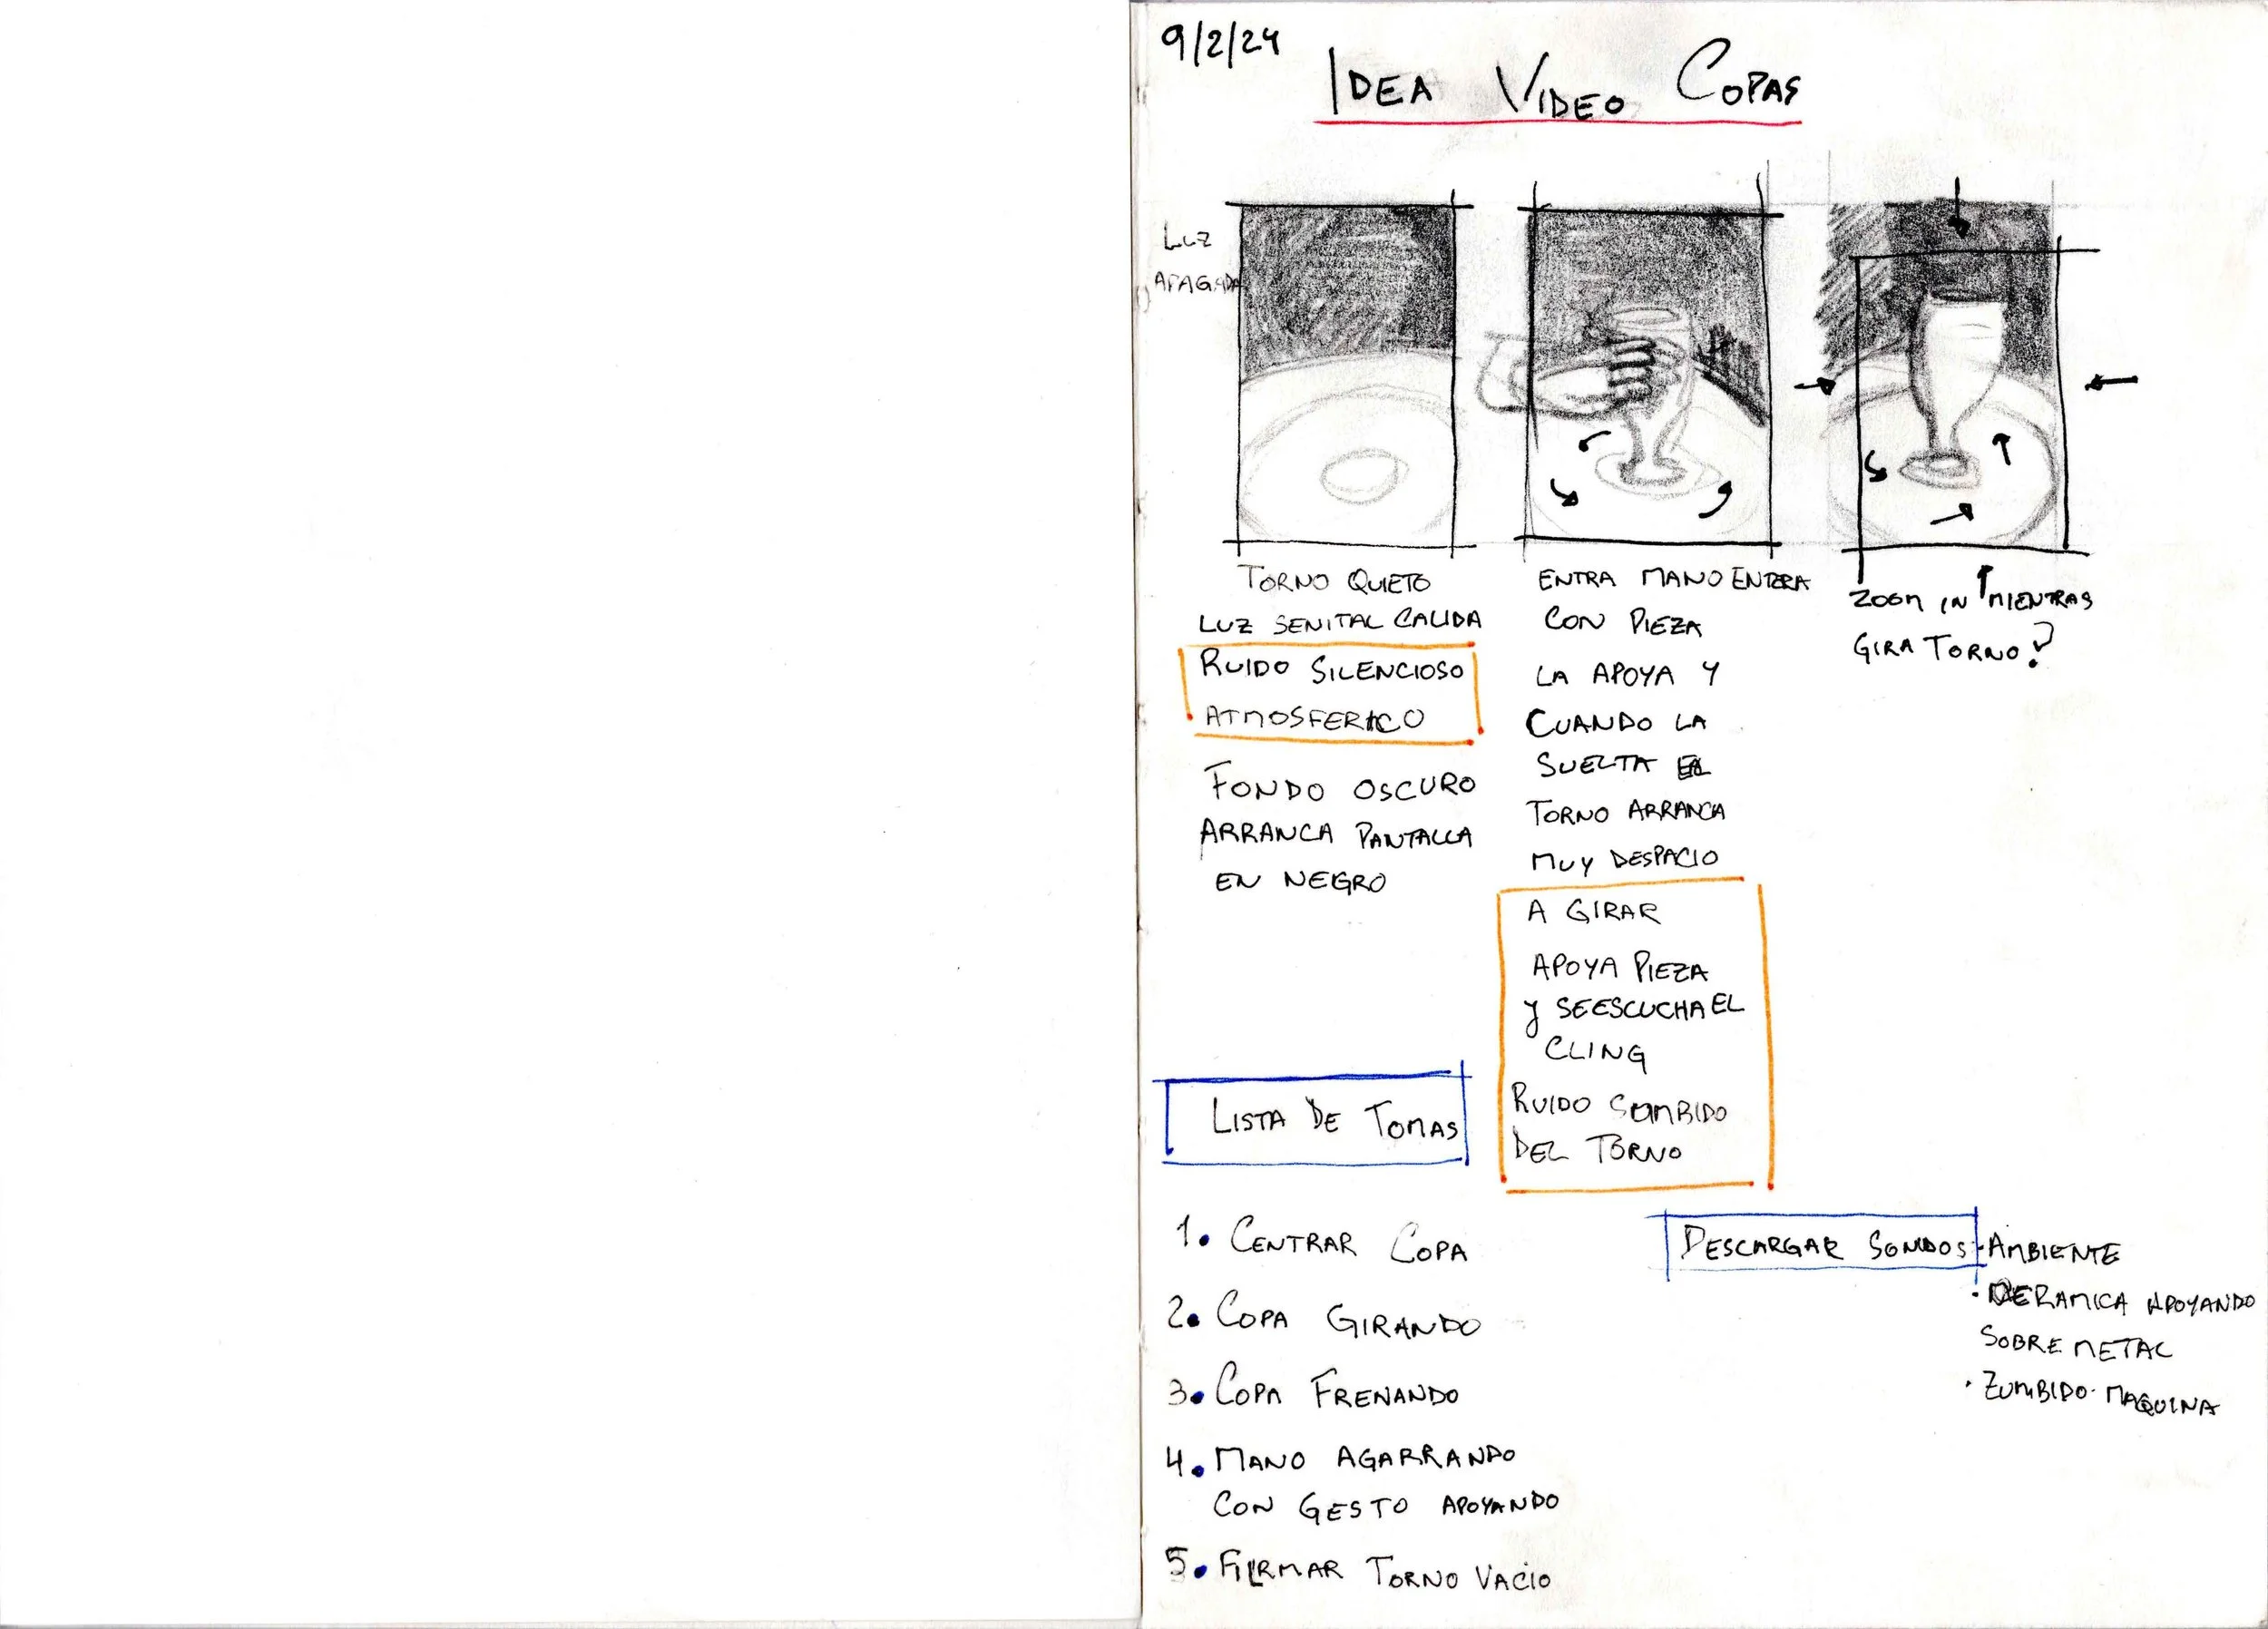 9/2/24
IDEA VIDEO COPAS
LUZ
APAGADA
TORNO QUIETO
LUZ SENITAL CALIDA
RUIDO SILENCIOSO
ATMOSFERICO
FONDO OSCURO
ARRANCA PANTALLA
EN NEGRO
ENTRA MANO ENTERA
CON PIEZA
LA APOYA Y
CUANDO LA
SUELTA EL
TORNO ARRANCA
MUY DESPACIO
A GIRAR
APOYA PIEZA
Y SE ESCUCHA EL
CLING
RUIDO SUMBIDO
DEL TORNO
ZOOM IN MIENTRAS
GIRA TORNO?
LISTA DE TOMAS
1. CENTRAR COPA
2. COPA GIRANDO
3. COPA FRENANDO
4. MANO AGARRANDO
CON GESTO APOYANDO
5. FILRMAR TORNO VACIO
DESCARGAR SONIDOS
- AMBIENTE
· CERAMICA APOYANDO
SOBRE METAL
· ZUMBIDO MAQUINA